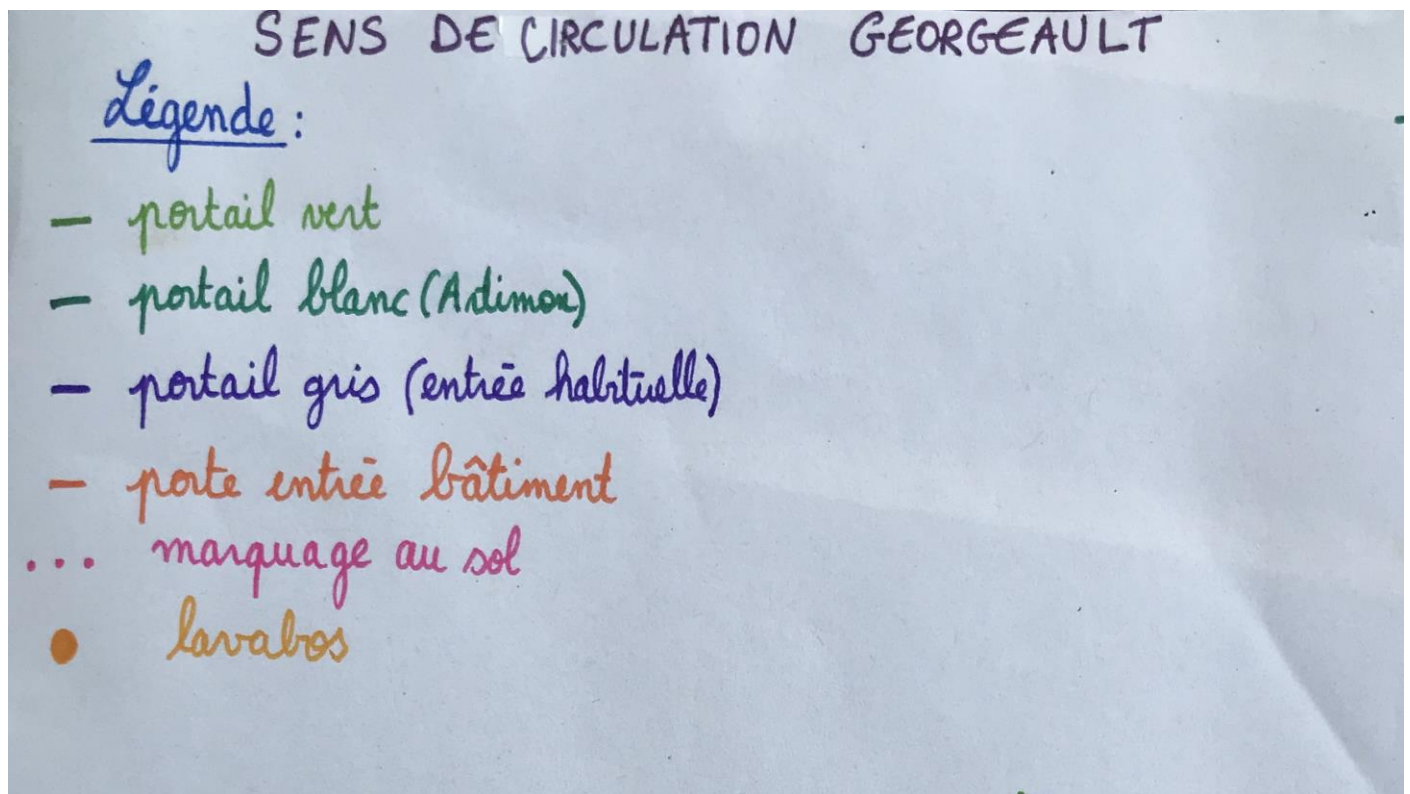 SENS DE CIRCULATION GEORGEAULT
Légende :
— portail vert
— portail blanc (Adimox)
— portail gris (entrée habituelle)
— porte entrée bâtiment
... marquage au sol
● lavabos